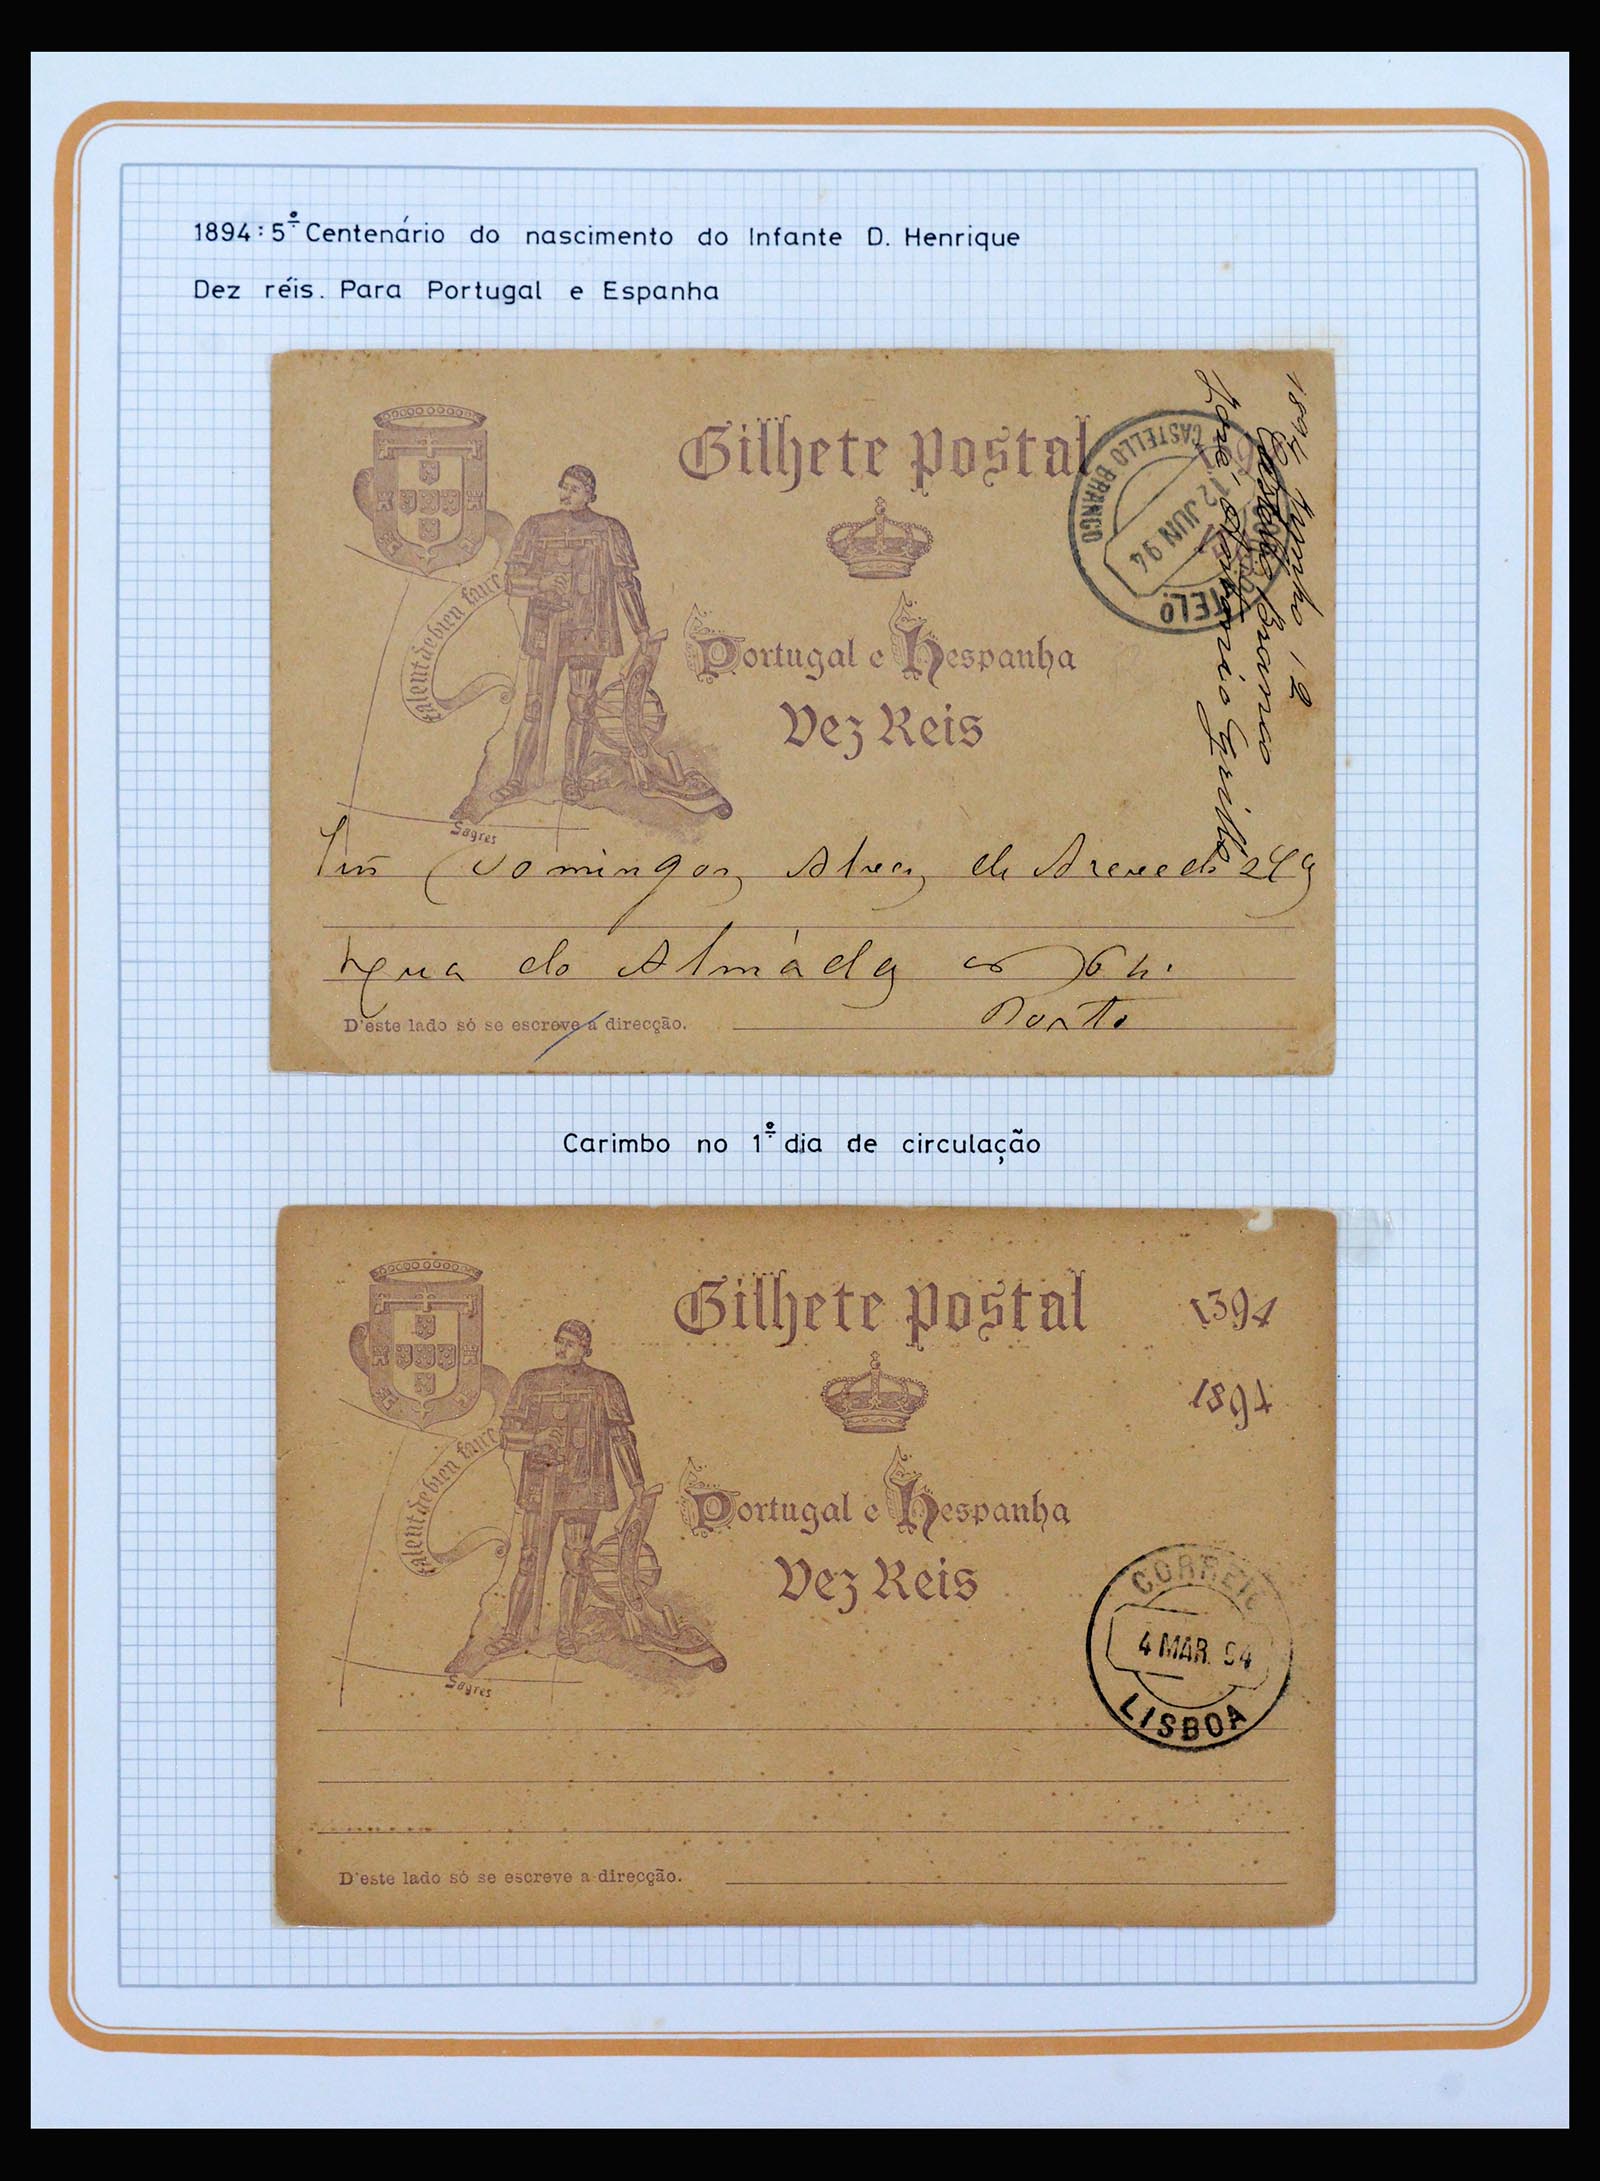 1894: 5º Centenário do nascimento do Infante D. Henrique
Dez réis. Para Portugal e Espanha
Bilhete postal
talent de bien faire
Portugal e Hespanha
Dez Reis
Sagres
CASTELLO BRANCO
12 JUN 94
1894 Junho 12
Castello Branco
José Antonio Grillo
Domingos Alves de Azevedo
Rua do Almada
Porto
D'este lado só se escreve a direcção.
Carimbo no 1º dia de circulação
Bilhete postal
1394
1894
talent de bien faire
Portugal e Hespanha
Dez Reis
Sagres
CORREIO
4 MAR. 94
LISBOA
D'este lado só se escreve a direcção.